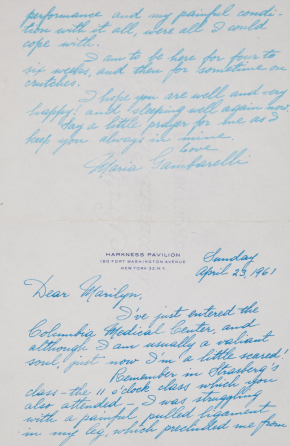 performance and my painful condi-
tion with it all, were all I could
cope with.
I am to be here for four to
six weeks, and then for sometime on
crutches.
I hope you are well and very
happy! and sleeping well again now.
Say a little prayer for me as I
keep you always in mine.
Love
Maria Gambarelli
HARKNESS PAVILION
180 FORT WASHINGTON AVENUE
NEW YORK 32, N.Y.
Sunday
April 23, 1961
Dear Marilyn,
I've just entered the
Columbia Medical Center, and
although I am usually a valiant
soul, just now I'm a little scared!
Remember in Strasberg's
class - the 11 o'clock class which you
also attended - I was struggling
with a painful pulled ligament
in my leg, which precluded me from